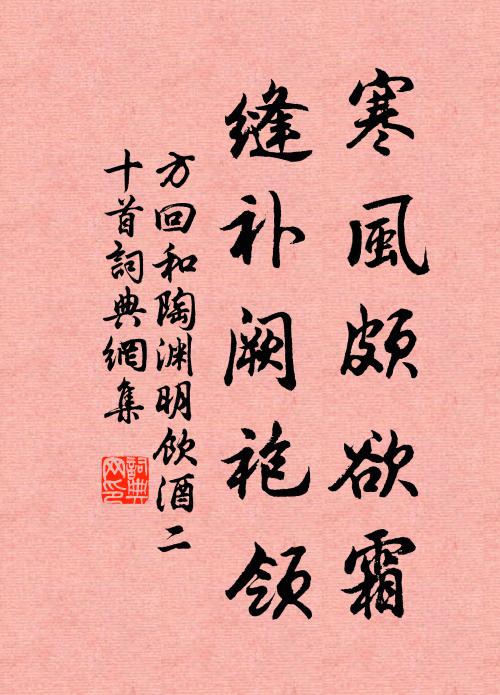 寒風頗欲霜
缝补阙袍领
方回和陶渊明饮酒二
十首詞典網集
詞典
网印